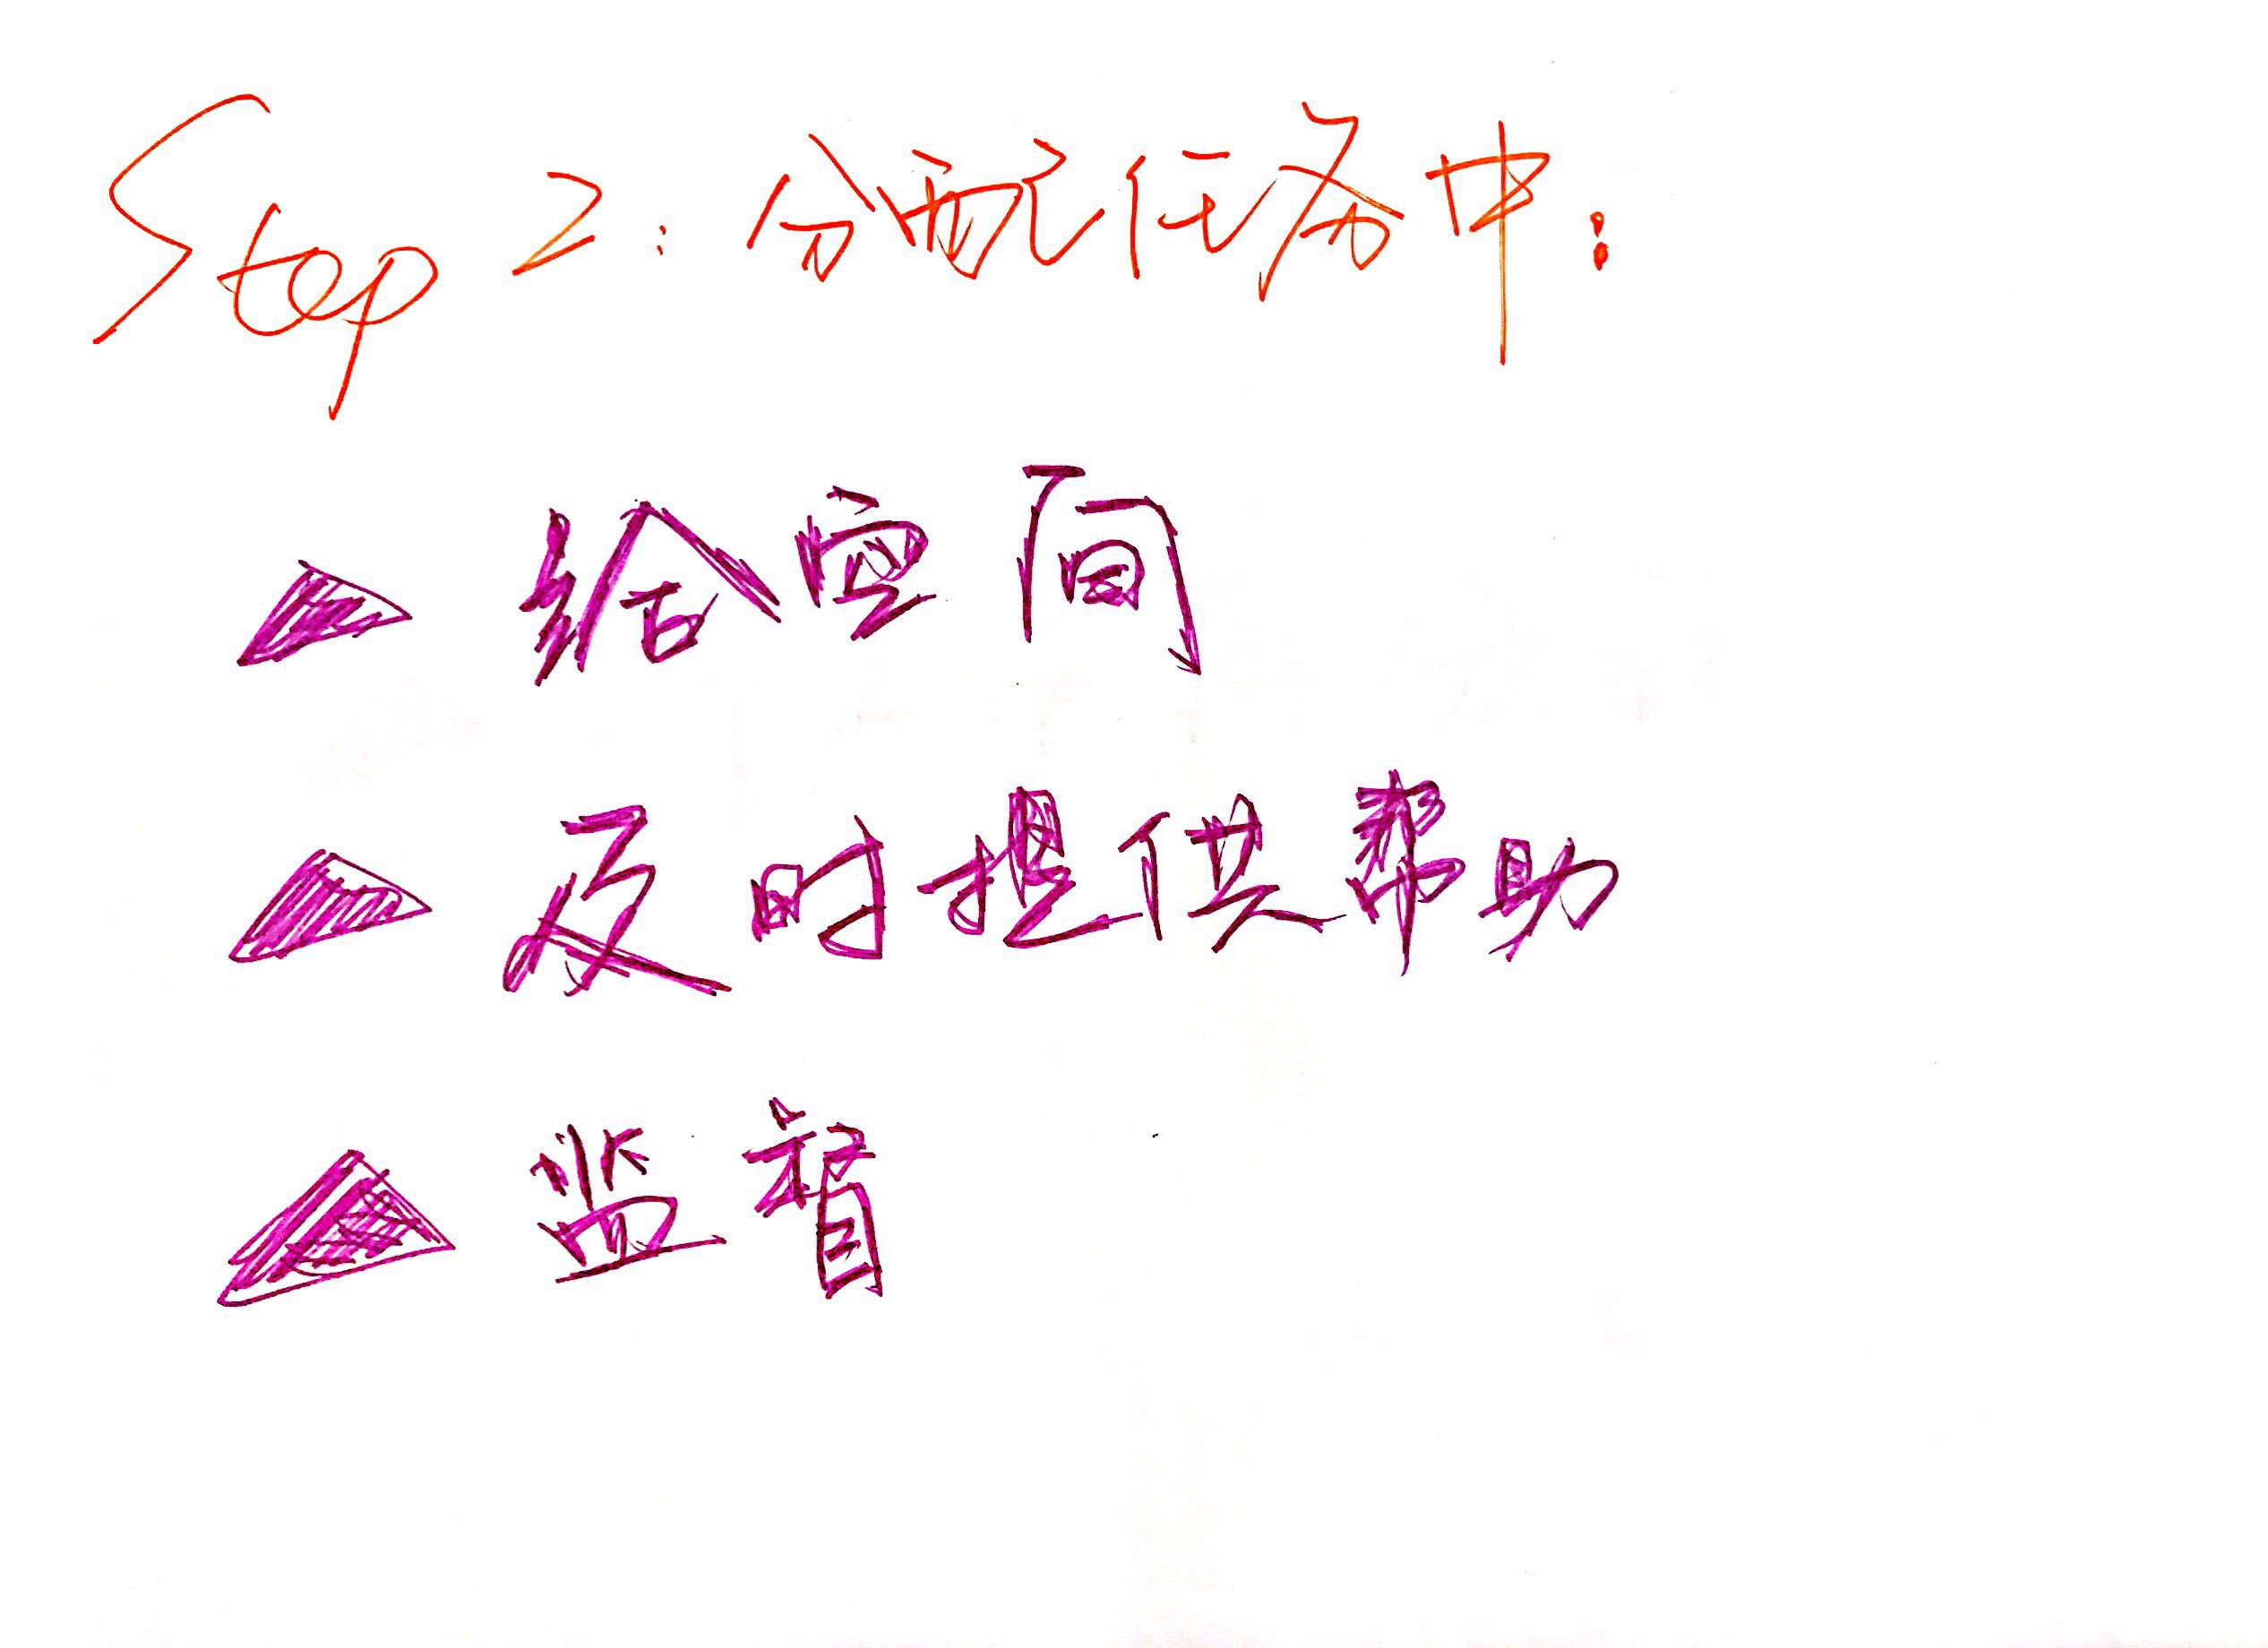 Step 2: 分配任务中:
▲ 给空间
▲ 及时提供帮助
▲ 监督